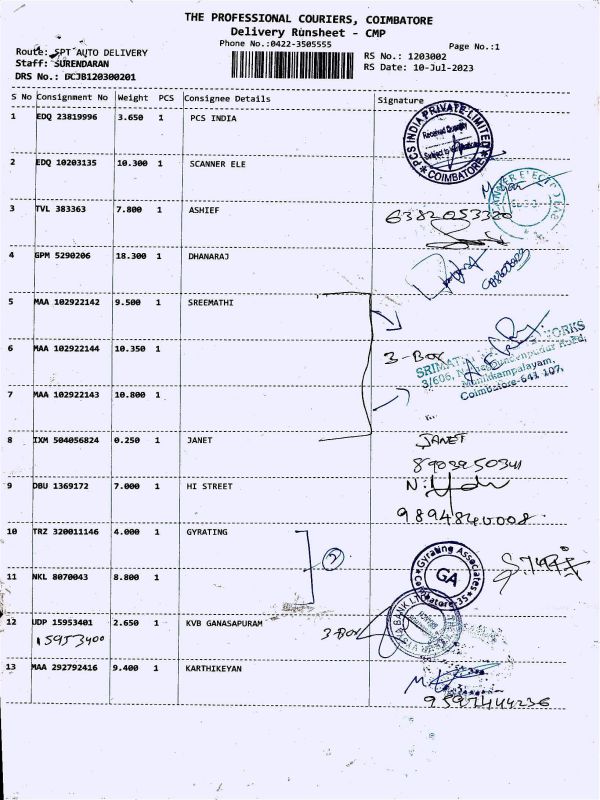 THE PROFESSIONAL COURIERS, COIMBATORE
Delivery Runsheet - CMP
Phone No.:0422-3505555
Page No.:1
Route: SPT AUTO DELIVERY
RS No.: 1203002
Staff: SURENDARAN
RS Date: 10-Jul-2023
DRS No.: BCJB120300201
S No Consignment No Weight PCS Consignee Details Signature
1 EDQ 23819996 3.650 1 PCS INDIA
PCS INDIA PRIVATE LIMITED
Received Quantity
Subject to Verification
COIMBATORE
2 EDQ 10203135 10.300 1 SCANNER ELE
3 TVL 383363 7.800 1 ASHIEF
6382053320
4 GPM 5290206 18.300 1 DHANARAJ
5 MAA 102922142 9.500 1 SREEMATHI
6 MAA 102922144 10.350 1
3-BOX
3/606,
Manikkampalayam,
Coimbatore-641 107.
7 MAA 102922143 10.800 1
8 IXM 504056824 0.250 1 JANET
JANET
8903250341
9 DBU 1369172 7.000 1 HI STREET
9894840008
10 TRZ 320011146 4.000 1 GYRATING
2
Gyrating Associates
GA
Coimbatore-35
11 NKL 8070043 8.800 1
12 UDP 15953401 2.650 1 KVB GANASAPURAM
15953400
3-BOX
13 MAA 292792416 9.400 1 KARTHIKEYAN
9597444236